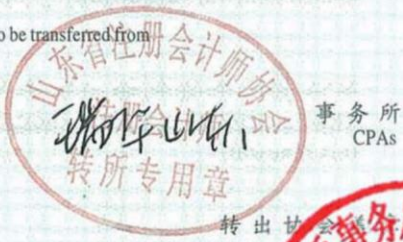 o be transferred from
山东省注册会计师协会
瑞华山东
注册会计师
转所专用章
事务所
CPAs
转出协会
事务